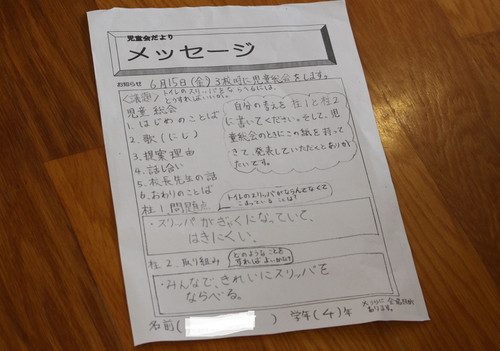 児童会だより
メッセージ
お知らせ 6月15日(金)3校時に児童総会をします。
〈議題〉トイレのスリッパをならべるには、
どうすればいいか。
児童総会
1.はじめのことば
2.歌(にじ)
3.提案理由
4.話し合い
5.校長先生の話
6.おわりのことば
自分の考えを柱1と柱2
に書いてください。そして、児
童総会のときにこの紙を持って
きて、発表していただくとありが
たいです。
柱1問題点
トイレのスリッパがならんでなくて
こまっていることは?
・スリッパがぎゃくになっていて、
はきにくい。
柱2.取り組み
どのようなことを
すればよいかな?
・みんなで、きれいにスリッパを
ならべる。
名前( ) 学年(4)年